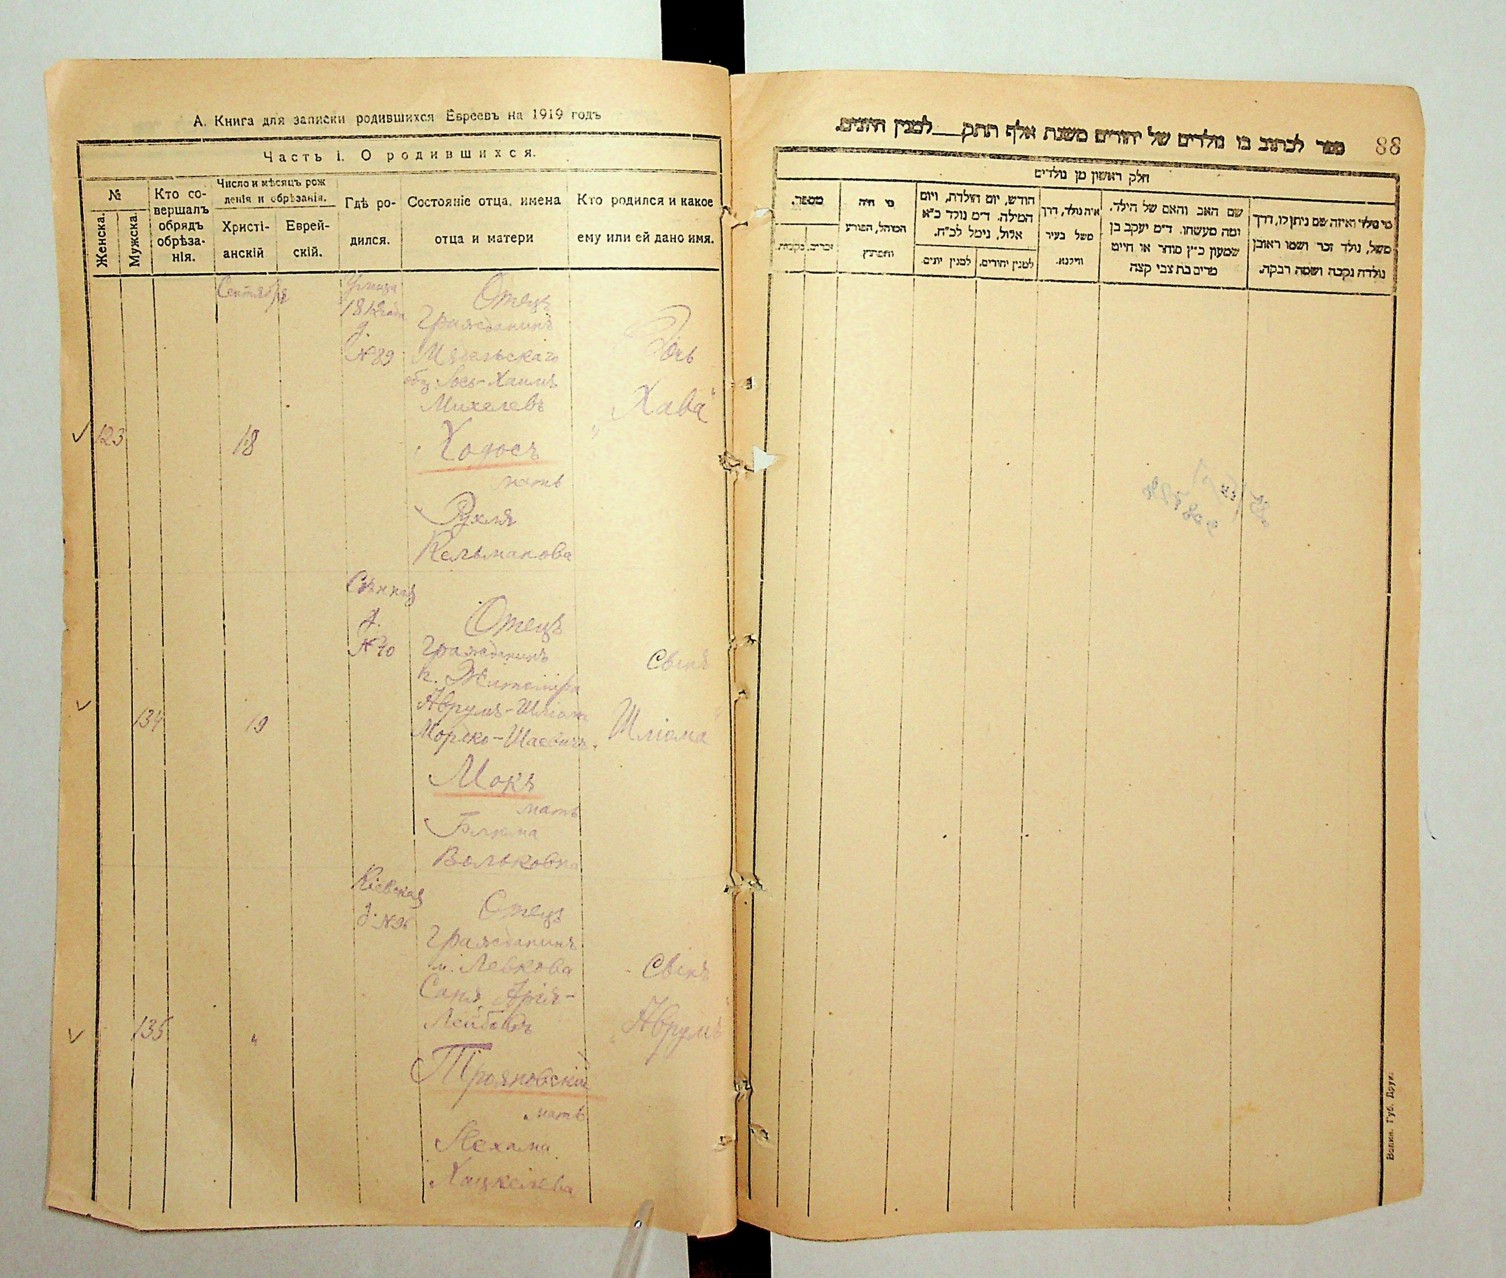 А. Книга для записки родившихся Евреевъ на 1919 годъ
Часть I. О родившихся.
№
Женска.
Мужска.
Кто со-
вершалъ
обрядъ
обрѣза-
нія.
Число и мѣсяцъ рож
денія и обрѣзанія.
Христі-
анскій
Еврей-
скій.
Гдѣ ро-
дился.
Состояніе отца, имена
отца и матери
Кто родился и какое
ему или ей дано имя.
Сентября
Улица
1812 года
д.
№ 89
Отецъ
Гражданинъ
общ.
Хаимъ
Михелевъ
Ходосъ
мать
Рухля
Кельманова
Дочь
„Хава"
123
18
Сѣнная
д.
№ 40
Отецъ
Гражданинъ
г. Житоміра
Аврумъ-Шліома
Мордко-Шаевичъ
Мокъ
мать
Вольковна
Свінъ
Шліома
134
19
Кіевская
д. № 96
Отецъ
Гражданинъ
м. Левкова
Арія-
Лейбовъ
Трояновскій
мать
Нехама
Хацкелева
Свінъ
„Аврумъ"
135
„
ספר לכתוב בו נולדים של יהודים משנת אלף התק___למנין היונים.
88
חלק ראשון מן נולדים
מספר.
זכרים.
נקבות.
מי היה
המוהל, הפורע
והמוצץ
חודש, יום הולדת, ויום
המילה. ד״מ נולד כ״א
אלול, נימל לכ״ח.
למנין יהודים.
למנין יונים.
איה נולד, דרך
משל בעיר
ווילנא.
שם האב והאם של הילד.
ומה מעשהו. ד״מ יעקב בן
שמעון כ״ץ סוחר או חייט
מרים בת צבי קצה
מי נולד ואיזה שם ניתן לו, דרך
משל, נולד זכר ושמו ראובן
נולדה נקבה ושמה רבקה.
Волин. Губ. Друк.